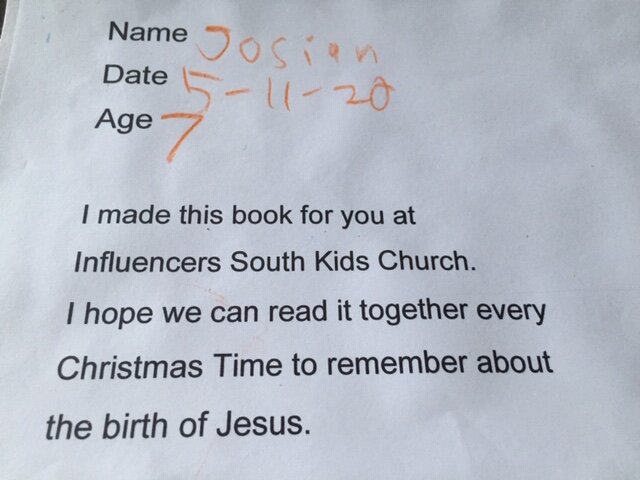 Name Josian
Date 5-11-20
Age 7
I made this book for you at
Influencers South Kids Church.
I hope we can read it together every
Christmas Time to remember about
the birth of Jesus.